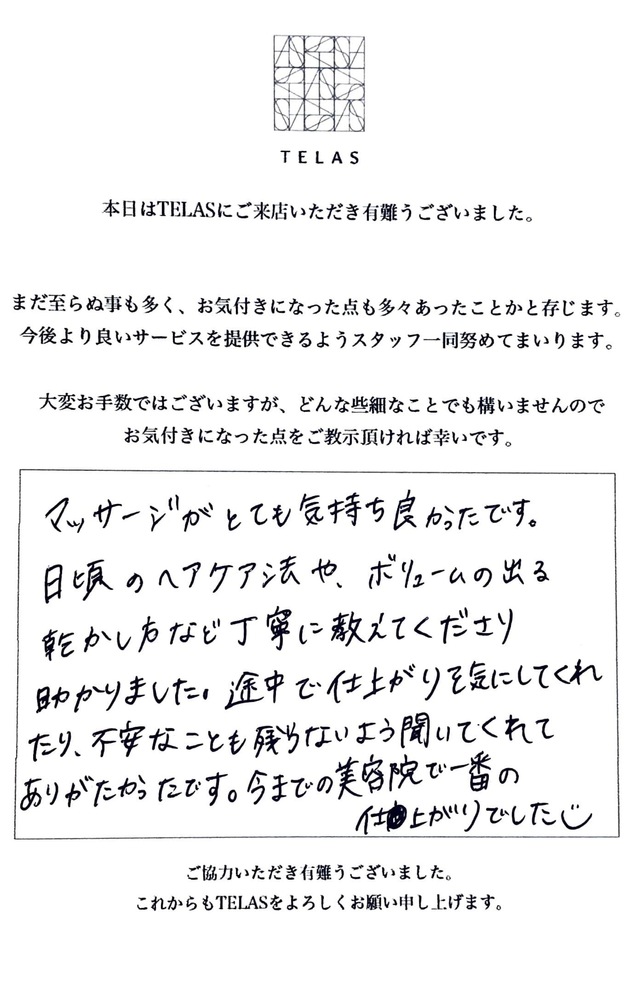 TELAS
本日はTELASにご来店いただき有難うございました。
まだ至らぬ事も多く、お気付きになった点も多々あったことかと存じます。
今後より良いサービスを提供できるようスタッフ一同努めてまいります。
大変お手数ではございますが、どんな些細なことでも構いませんので
お気付きになった点をご教示頂ければ幸いです。
マッサージがとても気持ち良かったです。
日頃のヘアケア法や、ボリュームの出る
乾かし方など丁寧に教えてくださり
助かりました。途中で仕上がりを気にしてくれ
たり、不安なことも残らないよう聞いてくれて
ありがたかったです。今までの美容院で一番の
仕上がりでした
ご協力いただき有難うございました。
これからもTELASをよろしくお願い申し上げます。